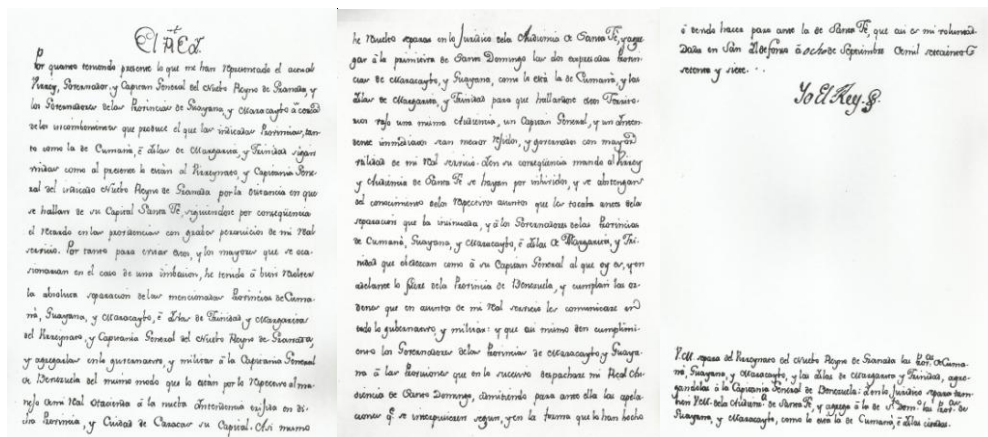 El Rey.
Por quanto teniendo presente lo que me han representado el actual
Virrey, Governador, y Capitan General del Nuevo Reyno de Granada, y
los Governadores de las Provincias de Guayana, y Maracaybo acerca
de los inconvenientes que produce el que las indicadas Provincias, tan-
to como la de Cumaná, é Islas de Margarita, y Trinidad sigan
unidas como al presente lo están al Virreynato, y Capitanía Gene-
ral del indicado Nuevo Reyno de Granada por la distancia en que
se hallan de su Capital Santa Fé, siguiendose por conseqüencia
el retardo en las providencias con graves perjuicios de mi Real
servicio. Por tanto para evitar estos, y los mayores que se oca-
sionarian en el caso de una imbasion, he tenido á bien resolver
la absoluta separacion de las mencionadas Provincias de Cuma-
ná, Guayana, y Maracaybo, é Islas de Trinidad, y Margarita
del Virreynato, y Capitanía General del Nuevo Reyno de Granada,
y agregarlas en lo guvernativo, y militar á la Capitanía General
de Venezuela del mismo modo que lo están por lo respectivo al ma-
nejo de mi Real Hacienda á la nueva Intendencia erigida en di-
cha Provincia, y Ciudad de Caracas su Capital. Assi mismo
he resuelto separar en lo Jurídico de la Audiencia de Santa Fé, y agre-
gar á la primitiva de Santo Domingo las dos expresadas Provin-
cias de Maracaybo, y Guayana, como lo está la de Cumaná, y las
Islas de Margarita, y Trinidad para que hallandose estos Territo-
rios bajo una misma Audiencia, un Capitan General, y un Inten-
dente inmediatos sean mejor regidos, y governados con mayor
utilidad de mi Real servicio. En su conseqüencia mando al Virrey
y Audiencia de Santa Fé se hayan por inhividos, y se abstengan
del conocimiento de los respectivos asuntos que les tocaba antes de la
separacion que ba insinuada, y á los Governadores de las Provincias
de Cumaná, Guayana, y Maracaybo, é Islas de Margarita, y Tri-
nidad que obedezcan como á su Capitan General al que oy es, y en
adelante lo fuere de la Provincia de Venezuela, y cumplan las or-
denes que en asunto de mi Real servicio les comunicare en
todo lo gubernativo, y militar: y que asi mismo den cumplimi-
ento los Governadores de las Provincias de Maracaybo, y Guaya-
na á las Provisiones que en lo sucesivo despachare mi Real Au-
diencia de Santo Domingo, admitiendo para ante ella las apela-
ciones q.e se interpusieren segun, y en la forma que lo han hecho
ó debido hacer para ante la de Santa Fé, que asi es mi voluntad.
Dada en San Ildefonso á ocho de Septiembre de mil setecientos
setenta y siete.
Yo El Rey.
V.M. separa del Virreynato del Nuevo Reyno de Granada las Prov.as de Cuma-
ná, Guayana, y Maracaybo, y las Islas de Margarita y Trinidad, agre-
gandolas á la Capitanía General de Venezuela: En lo Jurídico separa tam-
bien V.M. de la Audien.a de Santa Fé, y agrega á la de S.to Dom.o las Prov.as de
Guayana, y Maracaybo, como lo está la de Cumaná, é Islas citadas.